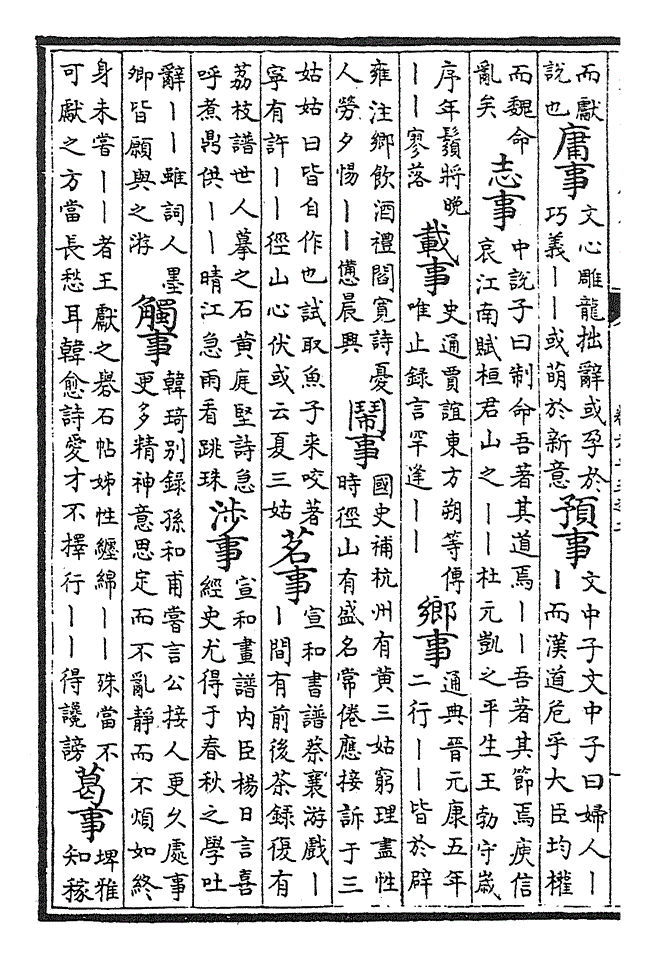 而獻說也庸事文心雕龍拙辭或孕於巧義丨丨或萌於新意預事文中子文中子曰婦人丨丨而漢道危乎大臣均權
而魏命亂矣志事中說子曰制命吾著其道焉丨丨吾著其節焉庾信哀江南賦桓君山之丨丨杜元凱之平生王勃守歲
序年鬚將晚丨丨寥落載事史通賈誼東方朔等傳唯止錄言罕逢丨丨鄉事通典晉元康五年二行丨丨皆於辟
雍注鄉飲酒禮閻寬詩憂人勞夕惕丨丨憊晨興鬧事國史補杭州有黃三姑窮理盡性時徑山有盛名常倦應接訴于三
姑姑曰皆自作也試取魚子来咬著寧有許丨丨徑山心伏或云夏三姑茗事宣和書譜蔡襄游戲丨丨間有前後茶錄復有
荔枝譜世人摹之石黃庭堅詩急呼煮鼎供丨丨晴江急雨看跳珠涉事宣和畫譜内臣楊日言喜經史尤得于春秋之學吐
辭丨丨雖詞人墨卿皆願與之游觸事韓琦别錄孫和甫嘗言公接人更久處事更多精神意思定而不亂靜而不煩如終
身未嘗丨丨者王獻之礜石帖姊性纏綿丨丨殊當不可獻之方當長愁耳韓愈詩愛才不擇行丨丨得讒謗葛事埤雅知稼